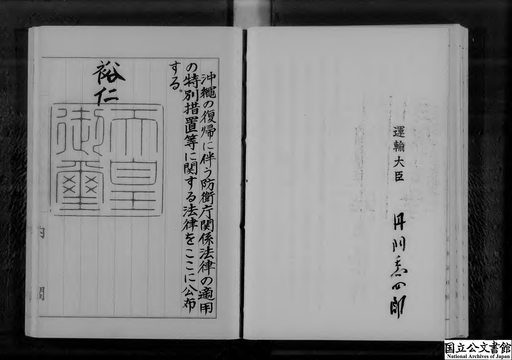 運輸大臣
丹羽喬四郎
沖繩の復帰に伴う防衛庁関係法律の適用
の特別措置等に関する法律をここに公布
する。
裕仁
天皇
御璽
内閣
国立公文書館
National Archives of Japan